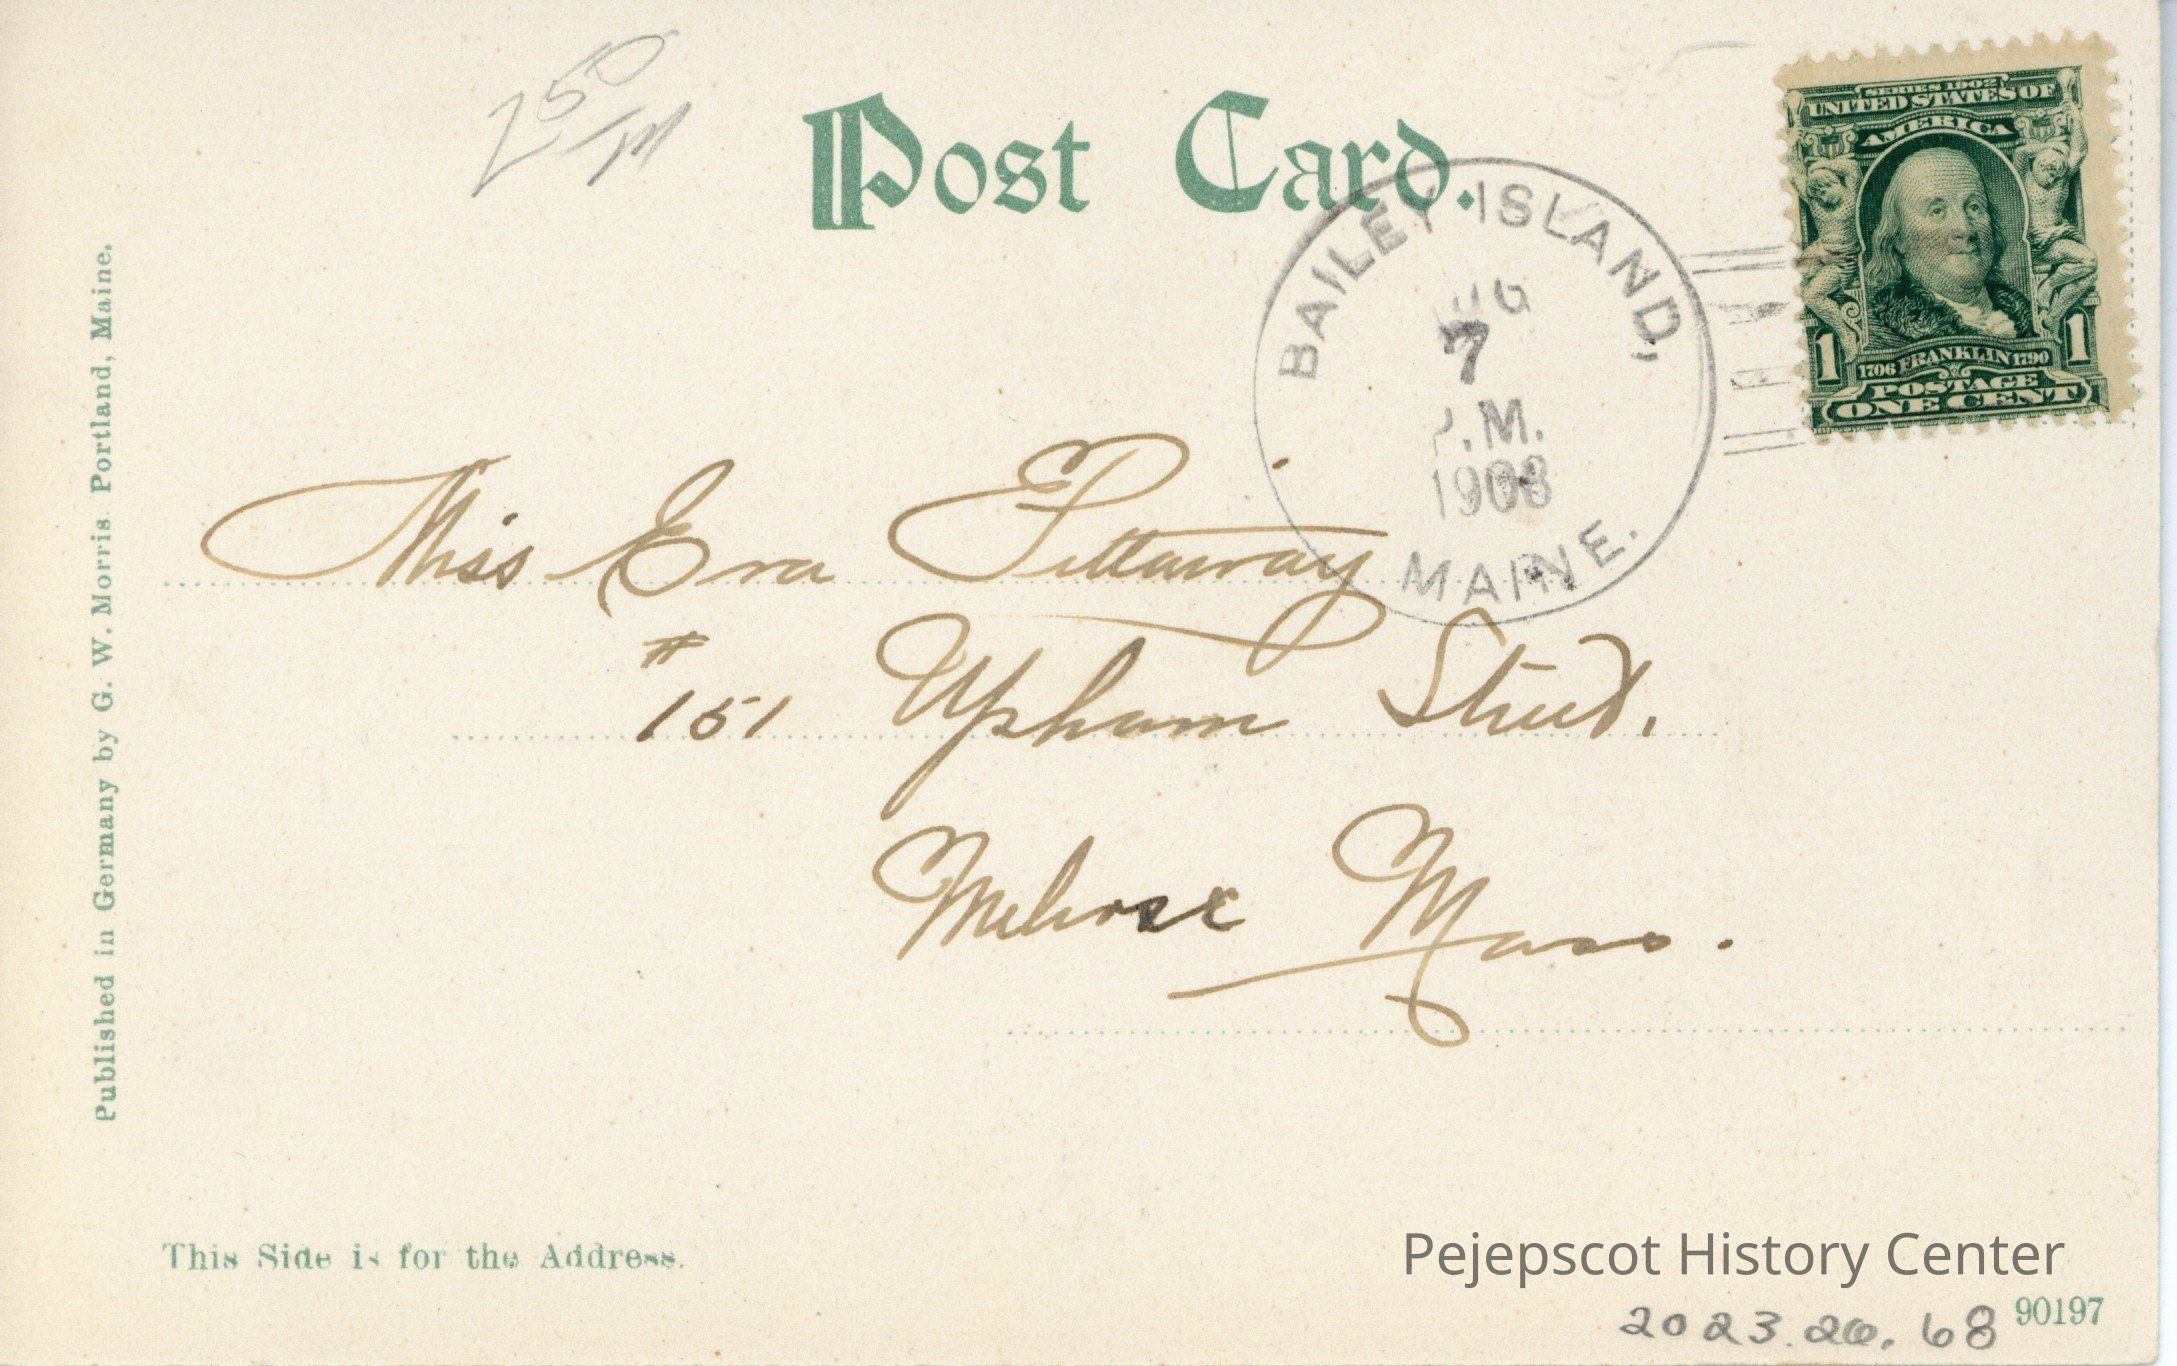 Post Card.
SERIES 1902
UNITED STATES OF
AMERICA
1706 FRANKLIN 1790
1 1
POSTAGE
ONE CENT
BAILEY ISLAND,
7
P.M.
1908
MAINE.
Miss Eva Pittaway
#
151 Upham Street.
Melrose Mass.
Published in Germany by G. W. Morris. Portland, Maine.
This Side is for the Address.
Pejepscot History Center
2023.26.68 90197